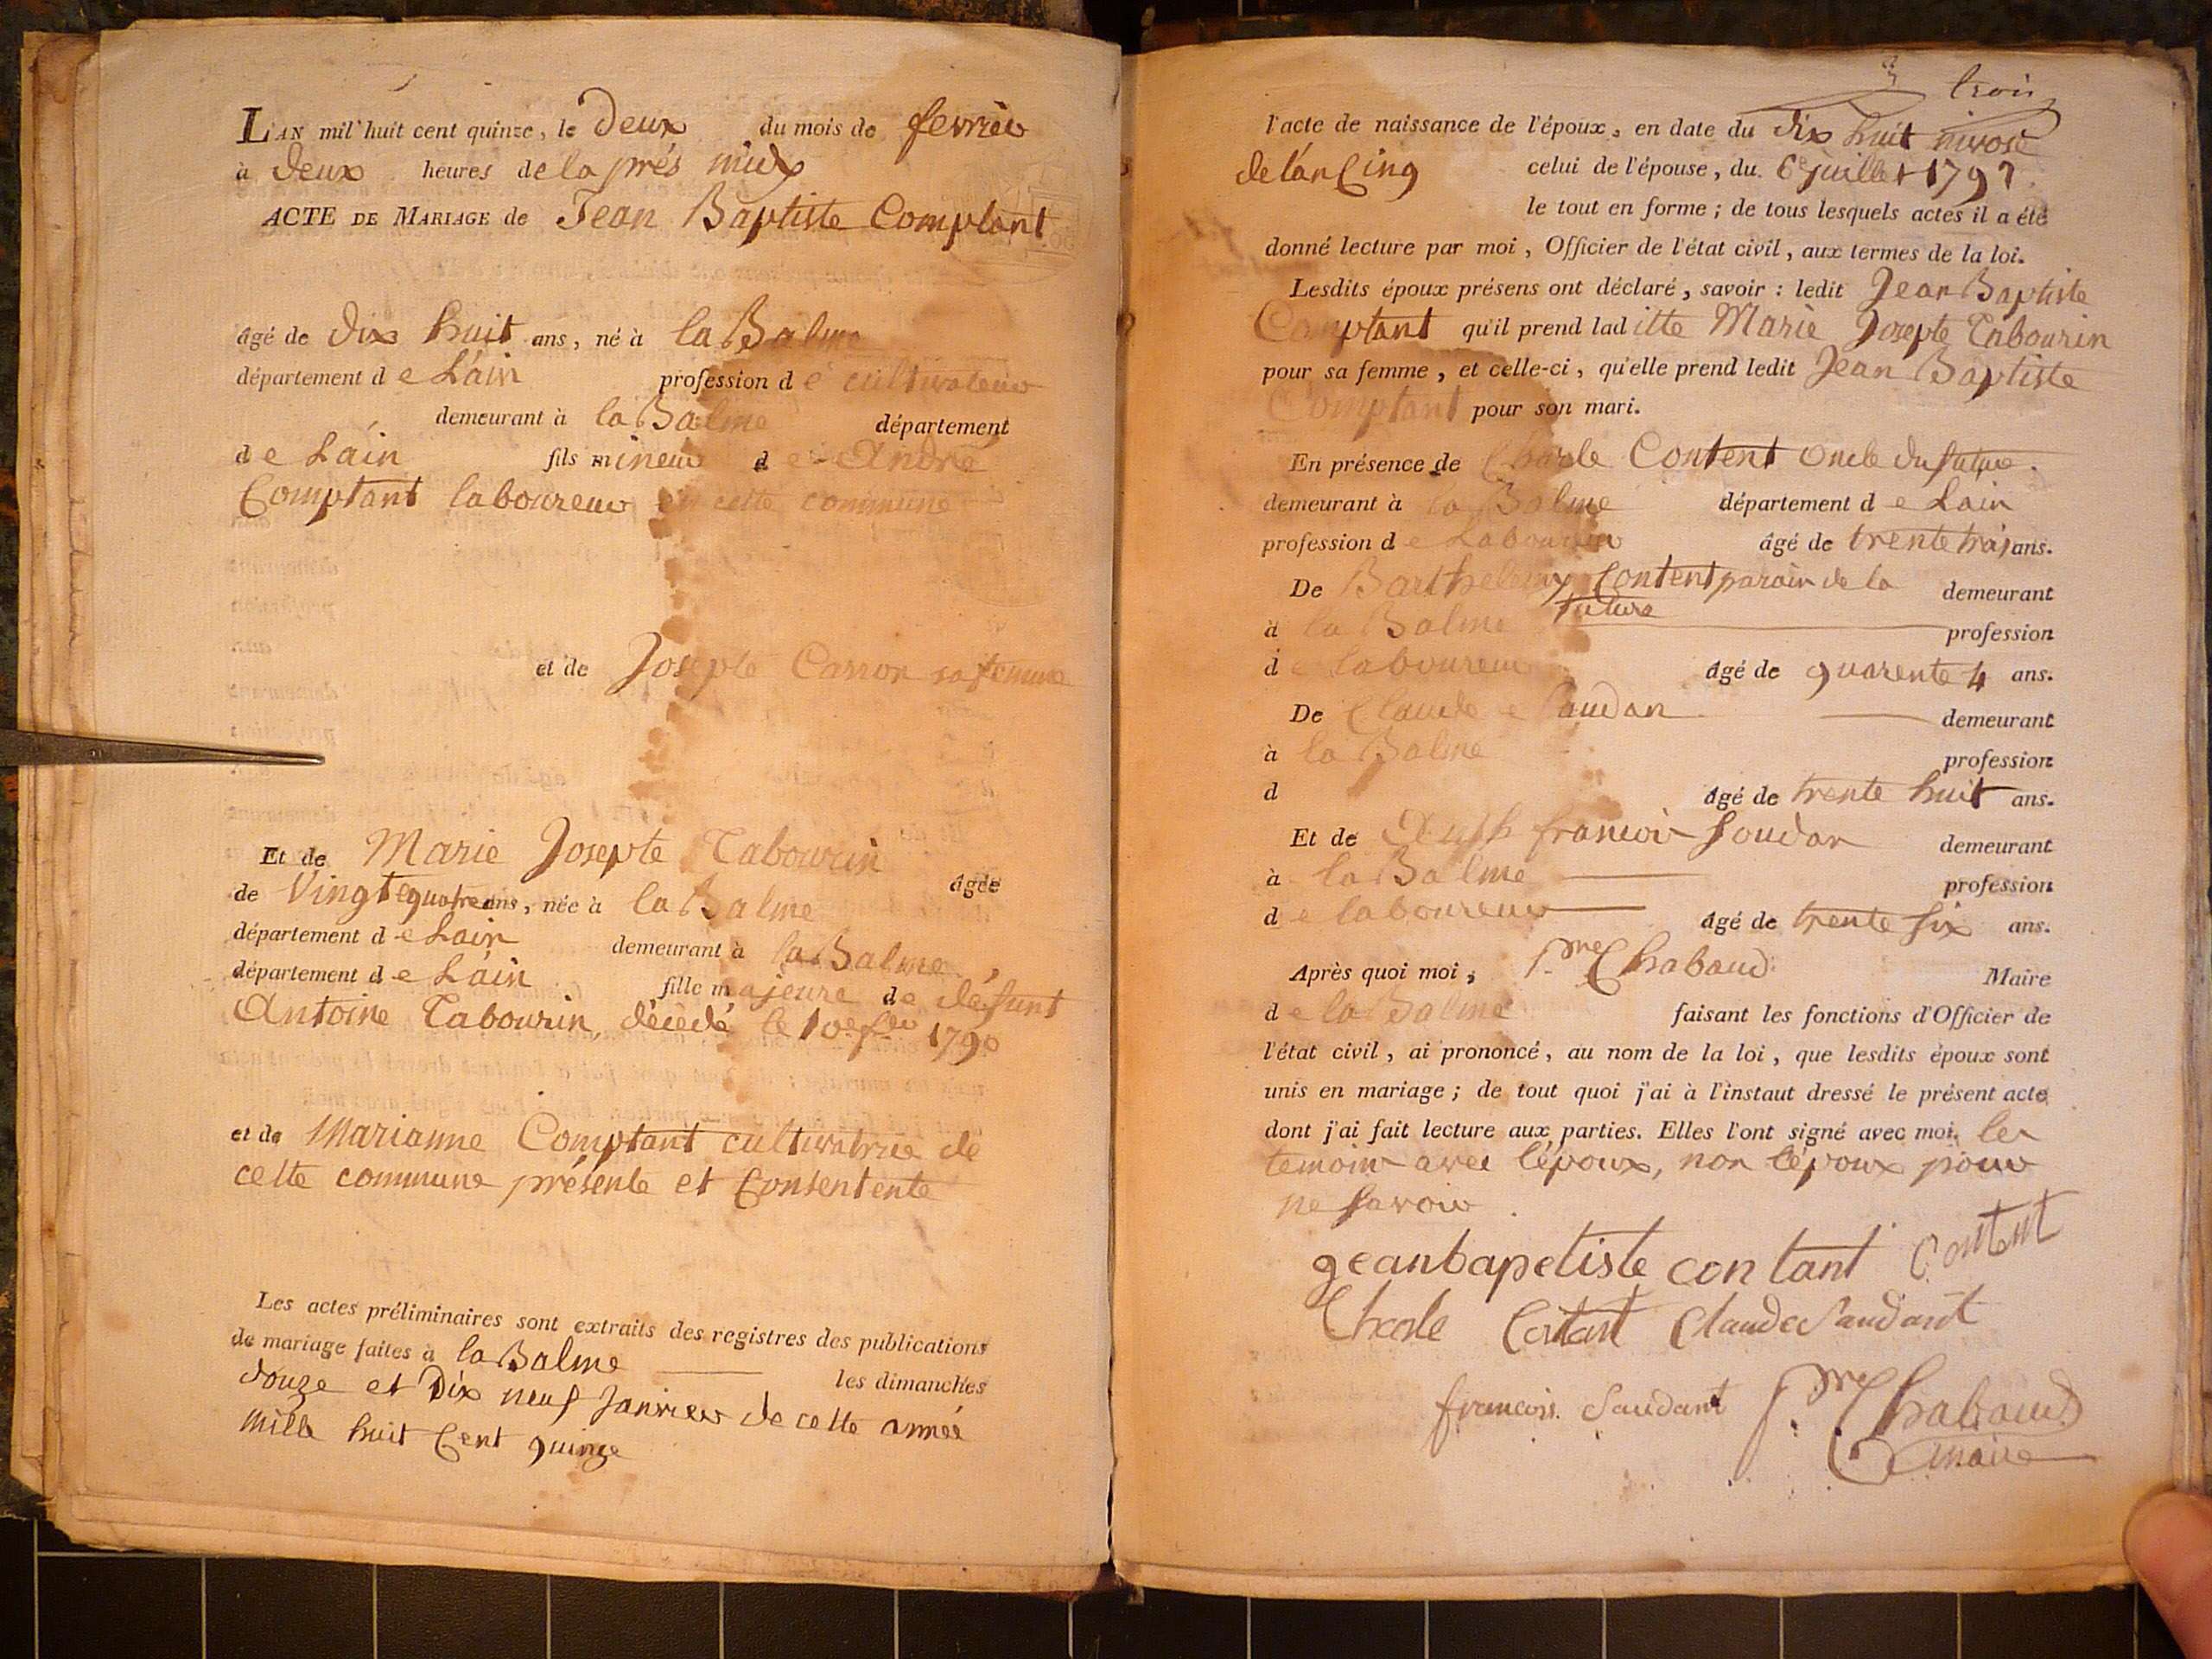 L'AN mil huit cent quinze, le Deux du mois de fevrier
à Deux heures de la prés midy
ACTE DE MARIAGE de Jean Baptiste Comptant
âgé de Dix huit ans, né à la Balme
département de Láin profession de cultivateur
demeurant à la Balme département
de Láin fils mineur de André
Comptant laboureur en cette commune
et de Josepte Carron sa femme
Et de Marie Josepte Tabourin
âgée
de Vingt equatre ans, née à la Balme
département de Lain demeurant à la Balme,
département de Láin fille majeure de défunt
Antoine Tabourin, décédé le 10e 1790
et de Marianne Comptant cultivatrice de
cette commune présente et Consentente
Les actes préliminaires sont extraits des registres des publications
de mariage faites à la Balme les dimanches
douze et Dix neuf Janvier de cette année
mille huit Cent quinze
3 trois
l'acte de naissance de l'époux, en date du dix huit nivose
de lán Cinq celui de l'épouse, du 6e juillet 1791
le tout en forme; de tous lesquels actes il a été
donné lecture par moi, Officier de l'état civil, aux termes de la loi.
Lesdits époux présens ont déclaré, savoir : ledit Jean Baptiste
Comptant qu'il prend laditte Marie Josepte Tabourin
pour sa femme, et celle-ci, qu'elle prend ledit Jean Baptiste
Comptant pour son mari.
En présence de Charle Content oncle du futur.
demeurant à la Balme département de Lain
profession de Laboureur âgé de trente trois ans.
De Barthelemy Content parain de la demeurant
future
à la Balme profession
de laboureur âgé de quarente 4 ans.
De Claude Saudan demeurant
à la Balme profession
d âgé de trente huit ans.
Et de francois Soudan demeurant
à la Balme profession
de laboureur âgé de trente six ans.
Après quoi moi, Chabaud Maire
de la Balme faisant les fonctions d'Officier de
l'état civil, ai prononcé, au nom de la loi, que lesdits époux sont
unis en mariage; de tout quoi j'ai à l'instant dressé le présent acte
dont j'ai fait lecture aux parties. Elles l'ont signé avec moi. les
temoins avec lépoux, non lépoux pour
ne Savoir.
geanbapetiste contant Content
Charle Contant Claude Saudant
francois Saudant Chabaud
maire